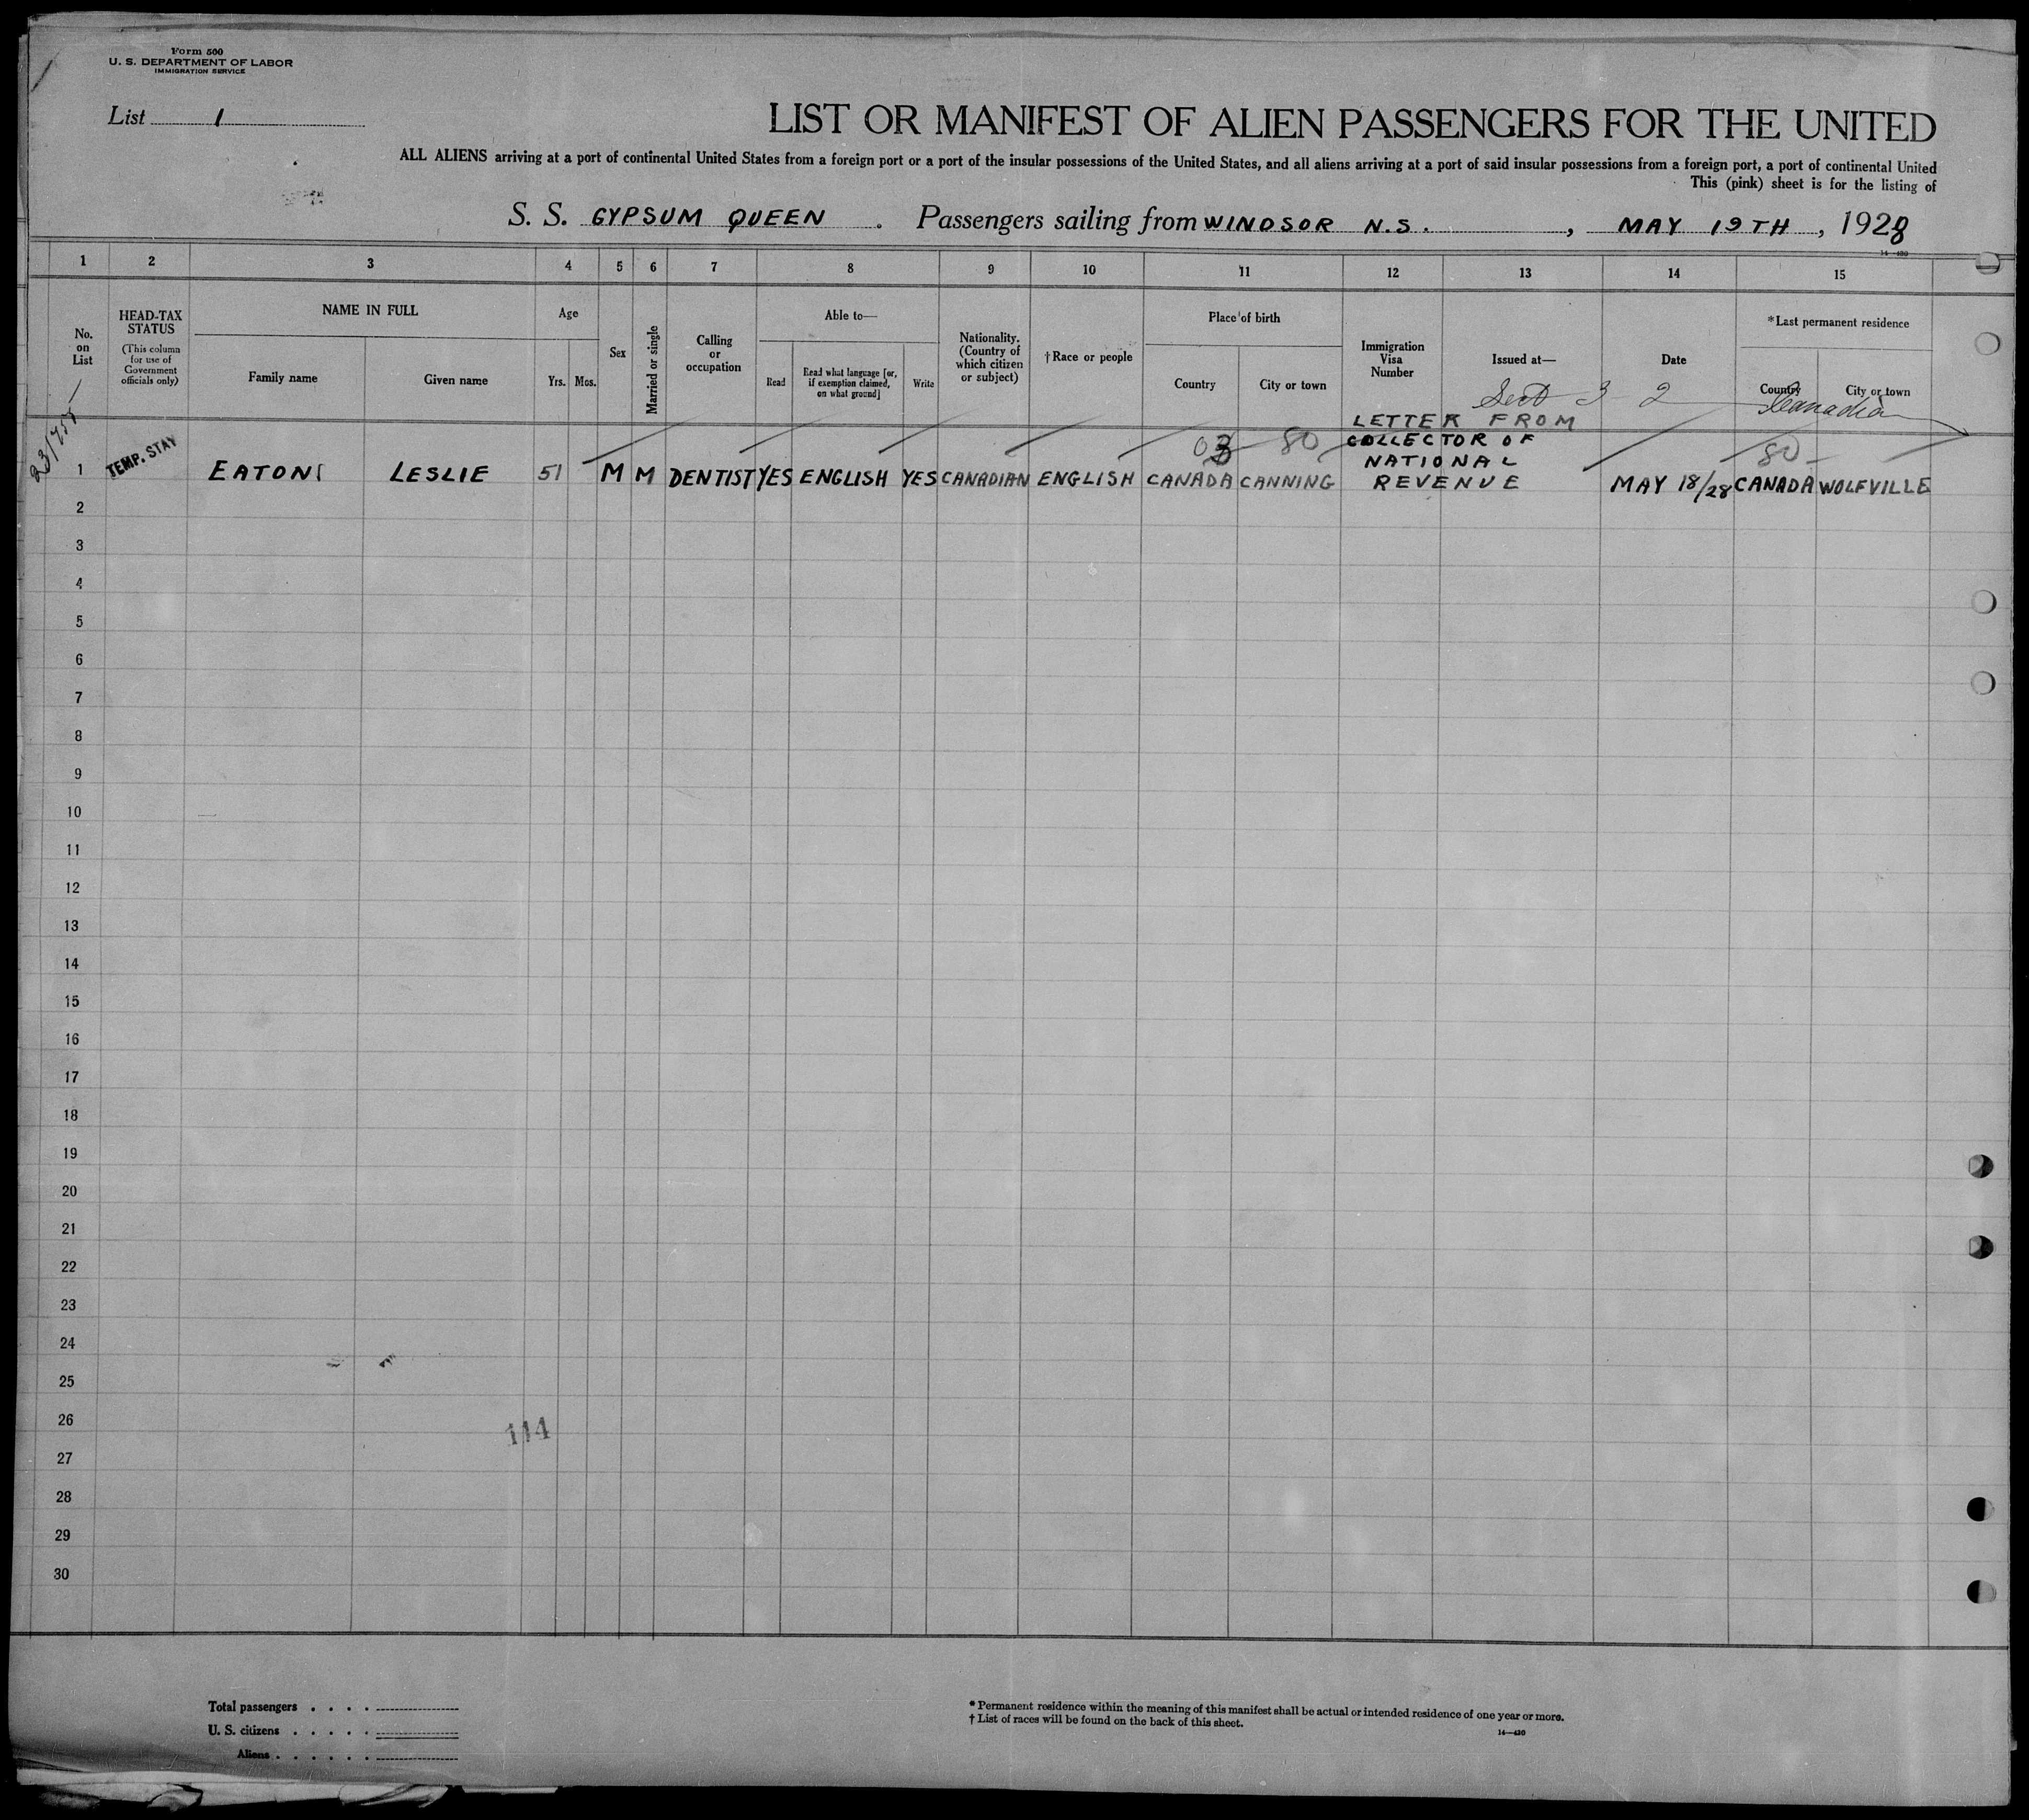 Form 500
U. S. DEPARTMENT OF LABOR
IMMIGRATION SERVICE
List 1
LIST OR MANIFEST OF ALIEN PASSENGERS FOR THE UNITED
ALL ALIENS arriving at a port of continental United States from a foreign port or a port of the insular possessions of the United States, and all aliens arriving at a port of said insular possessions from a foreign port, a port of continental United
This (pink) sheet is for the listing of
S. S. GYPSUM QUEEN . Passengers sailing from WINDSOR N.S. , MAY 19TH , 1928
14—430
1 2 3 4 5 6 7 8 9 10 11 12 13 14 15
No. on List
HEAD-TAX STATUS
(This column for use of Government officials only)
NAME IN FULL
Family name Given name
Age
Yrs. Mos.
Sex
Married or single
Calling or occupation
Able to—
Read
Read what language [or, if exemption claimed, on what ground]
Write
Nationality. (Country of which citizen or subject)
†Race or people
Place of birth
Country City or town
Immigration Visa Number
Issued at—
Date
*Last permanent residence
Country City or town
Sect 3 2 Canadian
LETTER FROM
COLLECTOR OF
NATIONAL
REVENUE
03 80 80
1 TEMP. STAY EATON LESLIE 51 M M DENTIST YES ENGLISH YES CANADIAN ENGLISH CANADA CANNING MAY 18/28 CANADA WOLFVILLE
2
3
4
5
6
7
8
9
10
11
12
13
14
15
16
17
18
19
20
21
22
23
24
25
26
114
27
28
29
30
Total passengers . . . .
U. S. citizens . . . . .
Aliens . . . . . .
* Permanent residence within the meaning of this manifest shall be actual or intended residence of one year or more.
† List of races will be found on the back of this sheet.
14—430